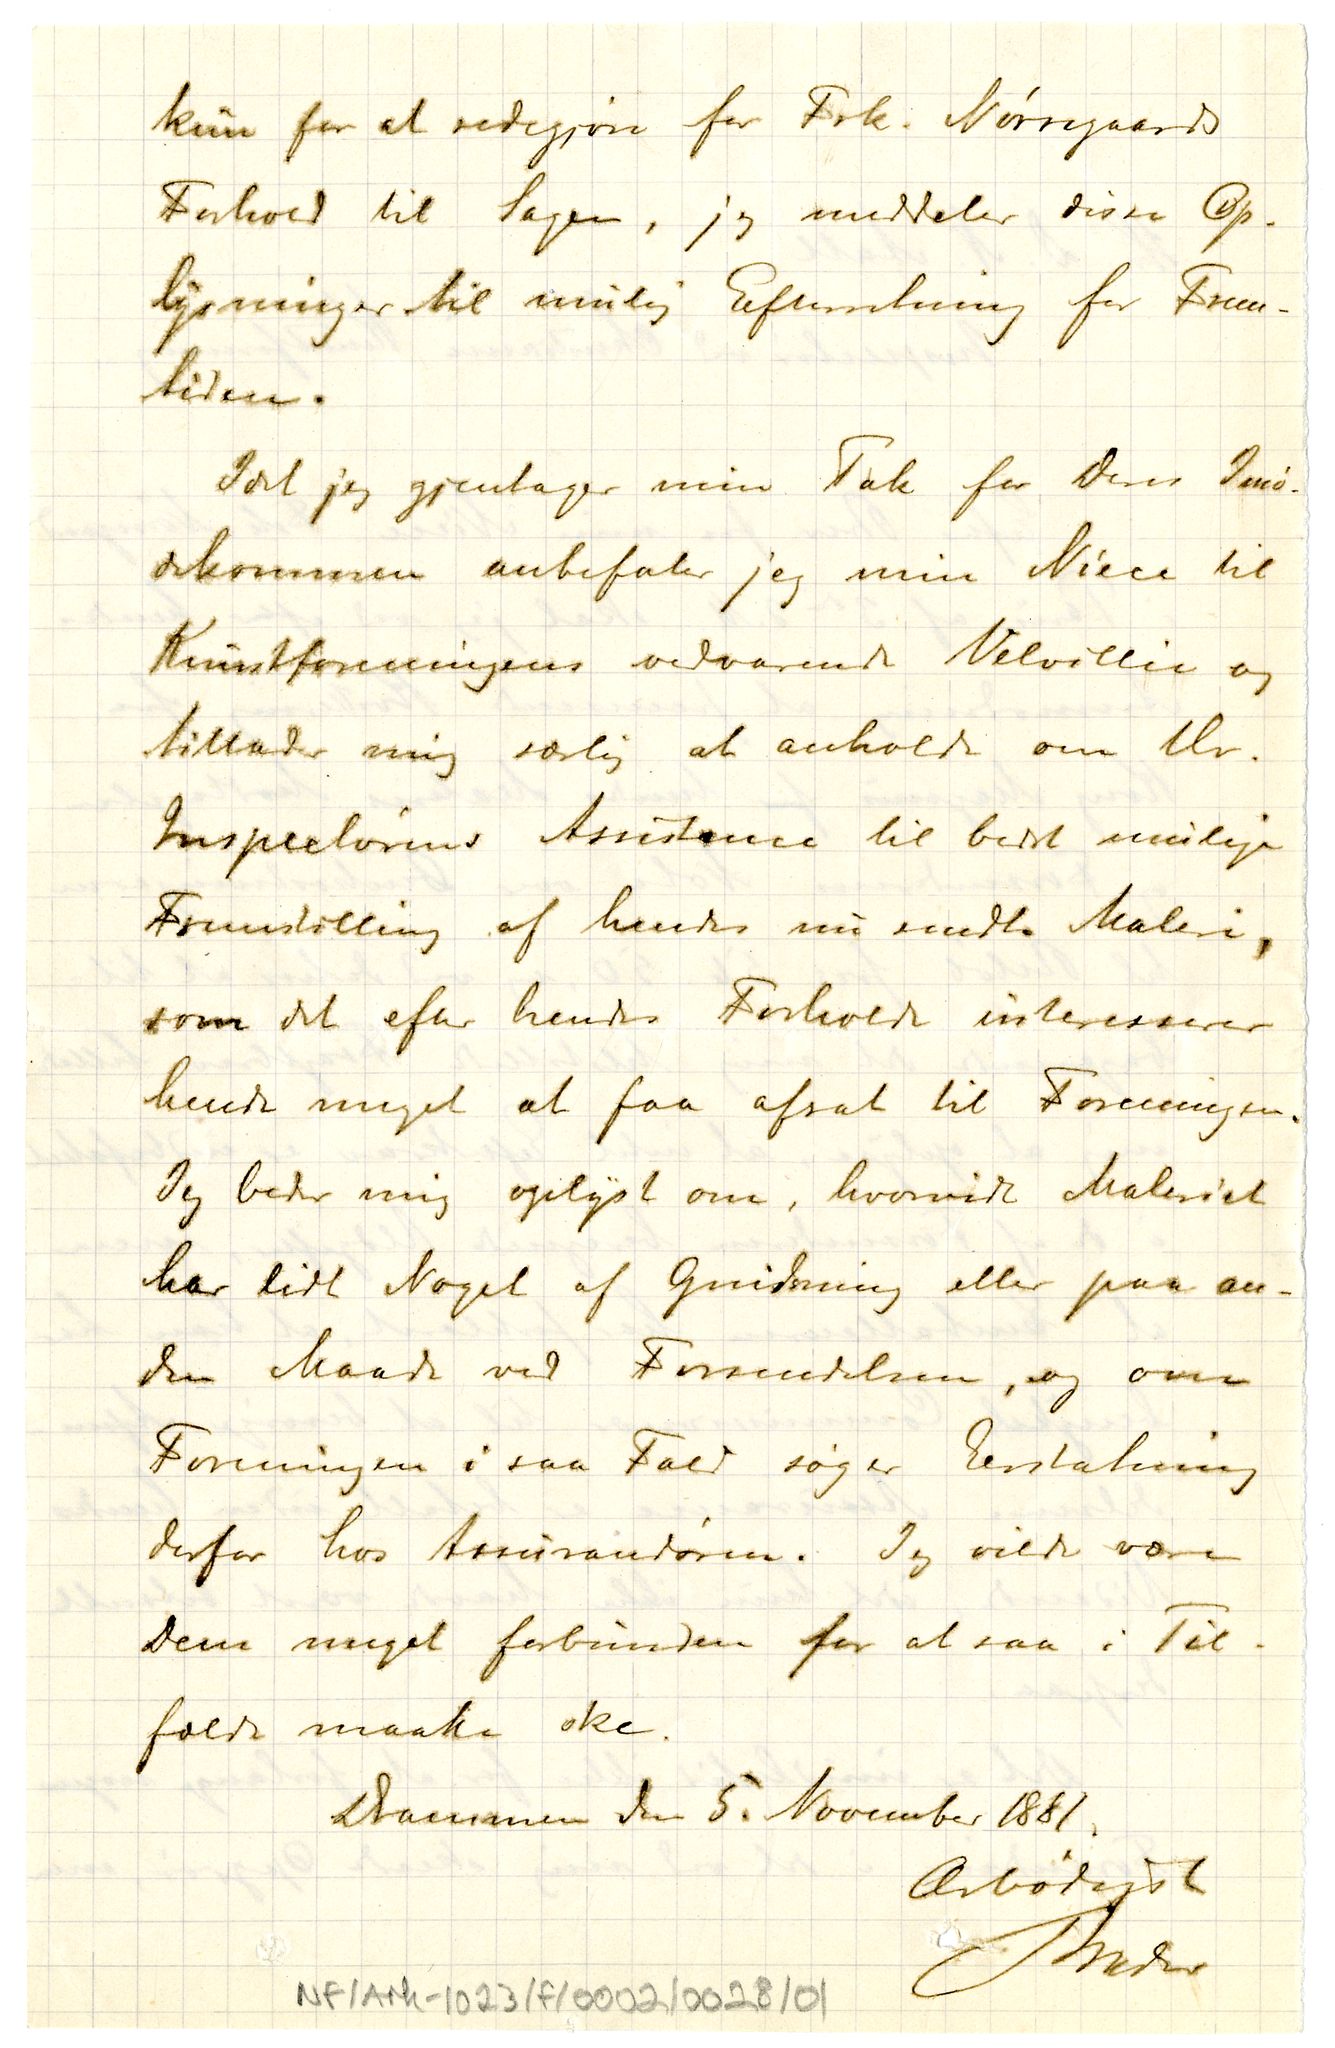 kun for at redegjøre for Frk. Nørregaards
Forhold til Sagen, jeg meddeler disse Op-
lysninger til mulig Efterretning for Frem-
tiden.
Idet jeg gjentager min Tak for Deres Imø-
dekommen anbefaler jeg min Niece til
Kunstforeningens vedvarende Velvillie og
tillader mig særlig at anholde om Hr.
Inspectørens Assistance til bedst mulige
Fremstilling af hendes nu sendte Maleri,
som det efter hendes Forholde interesserer
hende meget at faa afsat til Foreningen.
Jeg beder mig oplyst om, hvorvidt Maleriet
har lidt Noget af Gnidning eller paa an-
den Maade ved Forsendelsen, og om
Foreningen i saa Fald søger Erstatning
derfor hos Assurandøren. Jeg vilde være
Dem meget forbunden for at saa i Til-
fælde maatte ske.
Drammen den 5. November 1881.
Ærbødigst
NF/Ark-1023/F/0002/0028/01